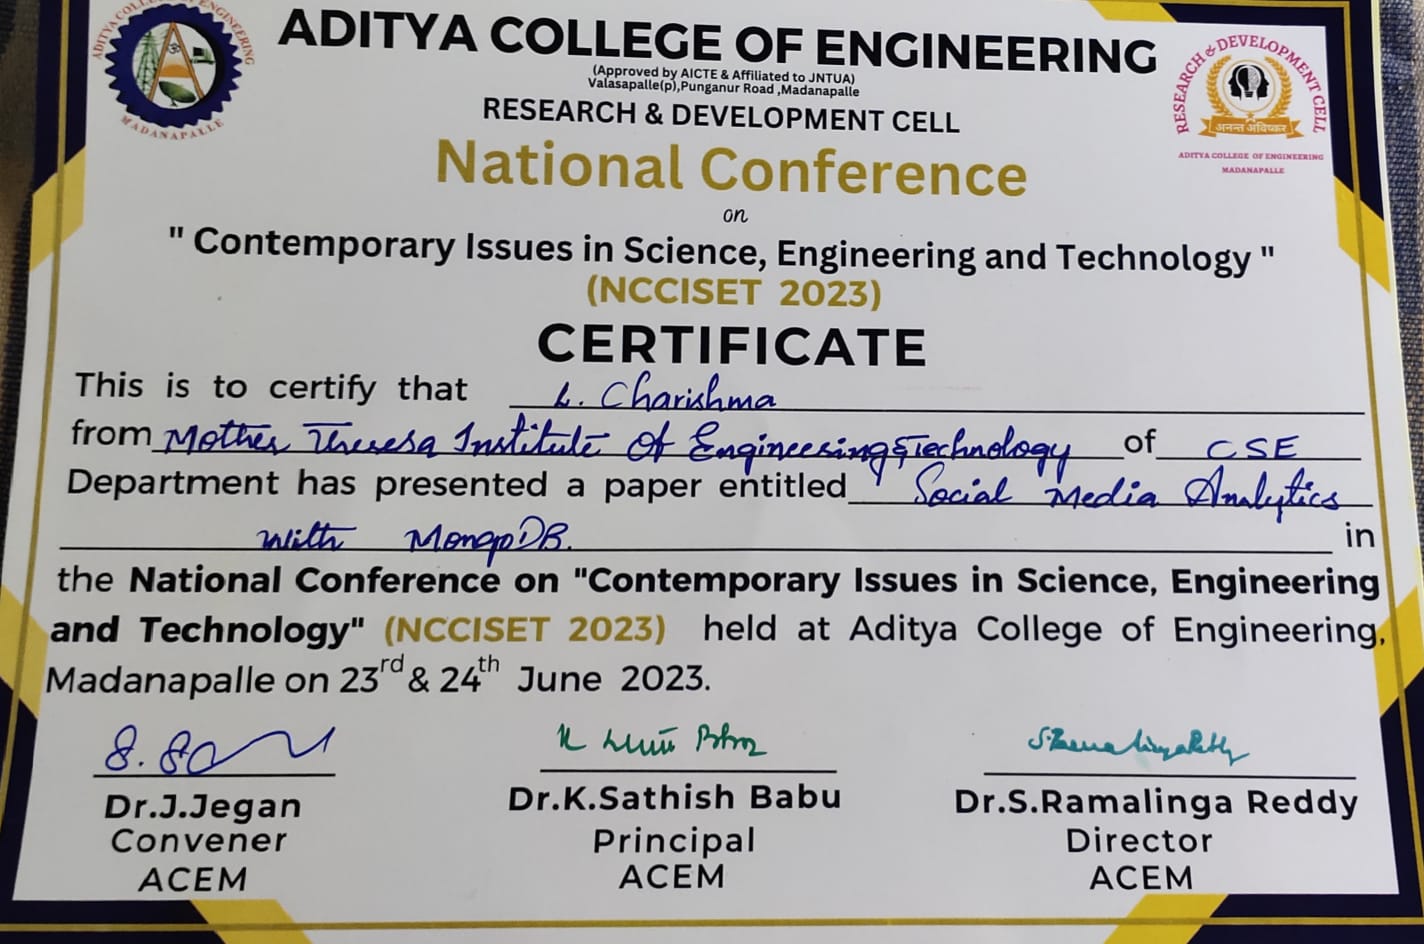 ADITYA COLLEGE OF ENGINEERING
MADANAPALLE
ADITYA COLLEGE OF ENGINEERING
(Approved by AICTE & Affiliated to JNTUA)
Valasapalle(p),Punganur Road ,Madanapalle
RESEARCH & DEVELOPMENT CELL
RESEARCH & DEVELOPMENT CELL
अनन्त अविष्कार
ADITYA COLLEGE OF ENGINEERING
MADANAPALLE
National Conference
on
" Contemporary Issues in Science, Engineering and Technology "
(NCCISET 2023)
CERTIFICATE
This is to certify that L. Charishma
from Mother Theresa Institute Of Engineering & Technology of CSE
Department has presented a paper entitled Social Media Analytics
with MongoDB. in
the National Conference on "Contemporary Issues in Science, Engineering
and Technology" (NCCISET 2023) held at Aditya College of Engineering,
Madanapalle on 23rd & 24th June 2023.
Dr.J.Jegan
Convener
ACEM
Dr.K.Sathish Babu
Principal
ACEM
Dr.S.Ramalinga Reddy
Director
ACEM